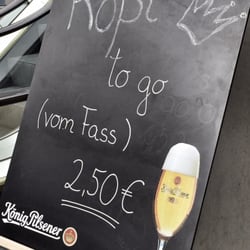 Köpi
to go
(vom Fass)
2,50€
König Pilsener